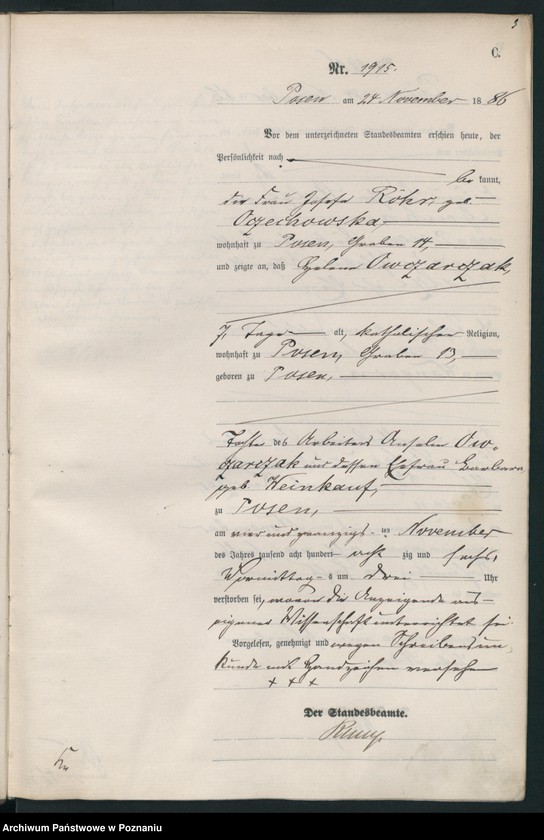 3
C.
Nr. 1915.
Posen am 24 November 1886
Vor dem unterzeichneten Standesbeamten erschien heute, der
Persönlichkeit nach
be kannt,
die Frau Josefa Röhr, geb.
Oczechowska
wohnhaft zu Posen, Graben 14,
und zeigte an, daß Helena Owczarczak,
7 Tage alt, katholischer Religion,
wohnhaft zu Posen, Graben 13,
geboren zu Posen,
Tochter des Arbeiters Anselm Ow-
czarczak und dessen Ehefrau Barbara
geb. Weinkauf,
zu Posen,
am vier und zwanzigsten November
des Jahres tausend acht hundert acht zig und sechs,
Vormittags um drei Uhr
verstorben sei, wovon die Anzeigende aus
eigener Wissenschaft unterrichtet sei
Vorgelesen, genehmigt und wegen Schreibensun-
kunde mit Handzeichen versehen
+ + +
Der Standesbeamte.
Archiwum Państwowe w Poznaniu